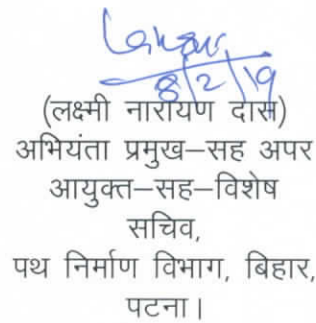 8/2/19
(लक्ष्मी नारायण दास)
अभियंता प्रमुख–सह अपर
आयुक्त–सह–विशेष
सचिव,
पथ निर्माण विभाग, बिहार,
पटना।